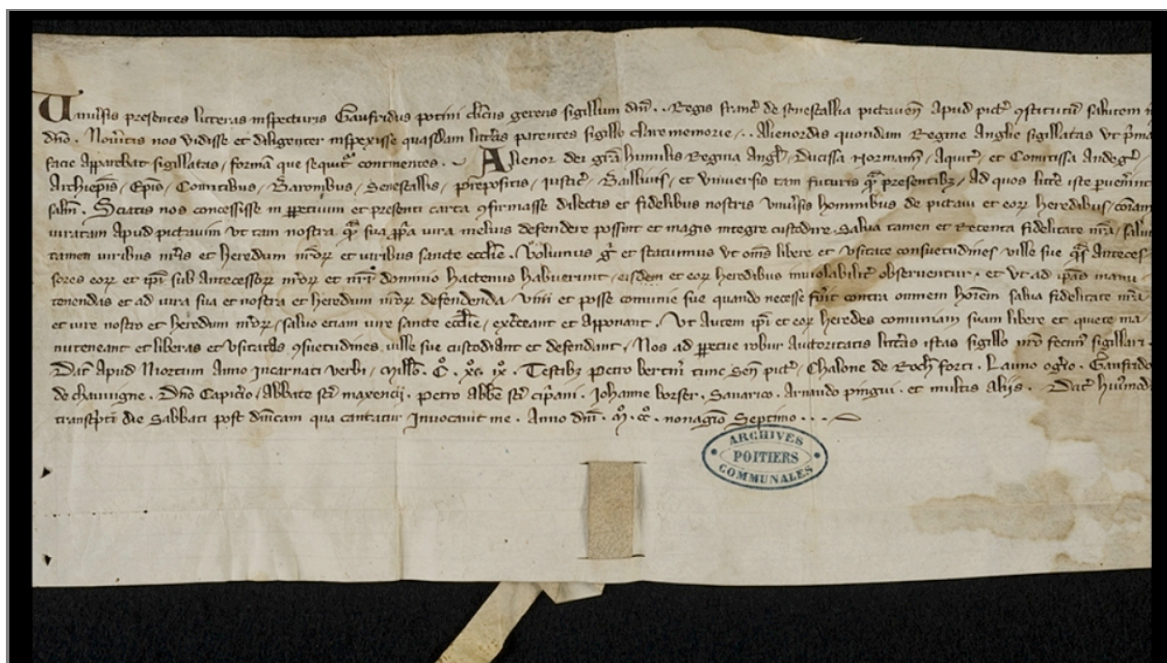 Univsis presentes litteras inspecturis Gaufridus potini cl'icus gerens sigillum dni . . Regis franc' de senescallia pictaven' Apud pict' 9stitutu' salutem
dno . Nov'itis nos vidisse et diligenter inspexisse quasdam litt'as patentes sigillo clare memorie . . Alienordis quondam Regine Anglie sigillatas ut p'ma
facie apparebat sigillatas / forma' que sequit' continentes . Alienor dei gra' humilis Regina Angl' / Ducissa Norman' / Aquit' / et Comitissa Andeg' /
Archiep'is / Ep'is / Comitibus / Baronibus / Senescallis / prepositis / iustic' / Baillivis / et Universis tam futuris q'm presentib' / Ad quos litt'e iste p'uen'int
sal'm . Sciatis nos concessisse in p'petuum et presenti carta 9firmasse dilectis et fidelibus nostris univ'sis hominibus de pictavi et eor' heredibus /
iuratam Apud pictavim ut tam nostra q'm sua p'pa iura melius defendere possint et magis integre custodire . Salva tamen et Retenta fidelitate n'ra /
tamen iuribus n'ris et heredum n'ror' et iuribus sancte eccl'ie . Volumus g' et statuimus ut om's libere et usitate consuetudines ville sue q's Anteces
sores eor' et ip'i sub Antecessor' n'ror' et n'ri dominio hactenus habuerint / eisdem et eor' heredibus inviolabilit' observentur . et ut ad ip'as manu
tenendas et ad iura sua et nostra et heredum n'ror' defendenda / vim et posse comunie sue quando necesse fu'it contra omnem ho'iem salva fidelitate n'ra
et iure nostro et heredum n'ror' / salvo etiam iure sancte eccl'ie / exerceant et apponant . Ut Autem ip'i et eor' heredes comuniam suam libere et quiete ma
nuteneant et liberas et usitatas 9suetudines ville sue custodiant et defendant / Nos ad p'petue robur Autoritatis litt'as istas sigillo n'ro fecim' sigillari .
Dat' Apud Niortum Anno incarnati verbi / Mill'o . C° . xc° . ix° . Testib' petro bertin' tunc Sen' pict' / Chalone de Roch'forti . Launo ogero . Gaufrido
de chauvigne . D'no Capicerio / Abbate s'ci maxencii . petro Abb'e s'ci cip'ani . Johanne borser . Savarico . Arnaudo pingui . et multis alijs . Dat'
transc'pti die Sabbati post d'nicam qua cantatur Invocavit me . Anno d'ni . M° . CC° . nonagesimo Septimo . . .
ARCHIVES
POITIERS
COMMUNALES